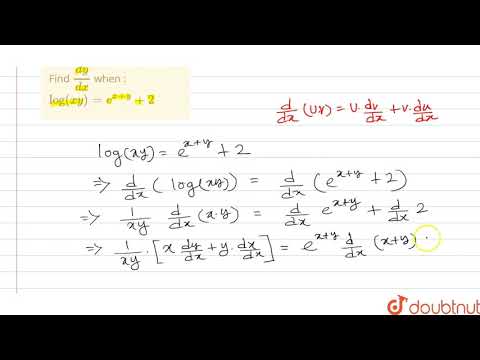 Find dy/dx when :
log(xy) = e^{x+y} + 2
d/dx (u.v) = u. dv/dx + v. du/dx
log(xy) = e^{x+y} + 2
⇒ d/dx ( log(xy)) = d/dx (e^{x+y} + 2)
⇒ 1/xy d/dx (x.y) = d/dx e^{x+y} + d/dx 2
⇒ 1/xy . [x dy/dx + y. dx/dx] = e^{x+y} d/dx (x+y) .
doubtnut